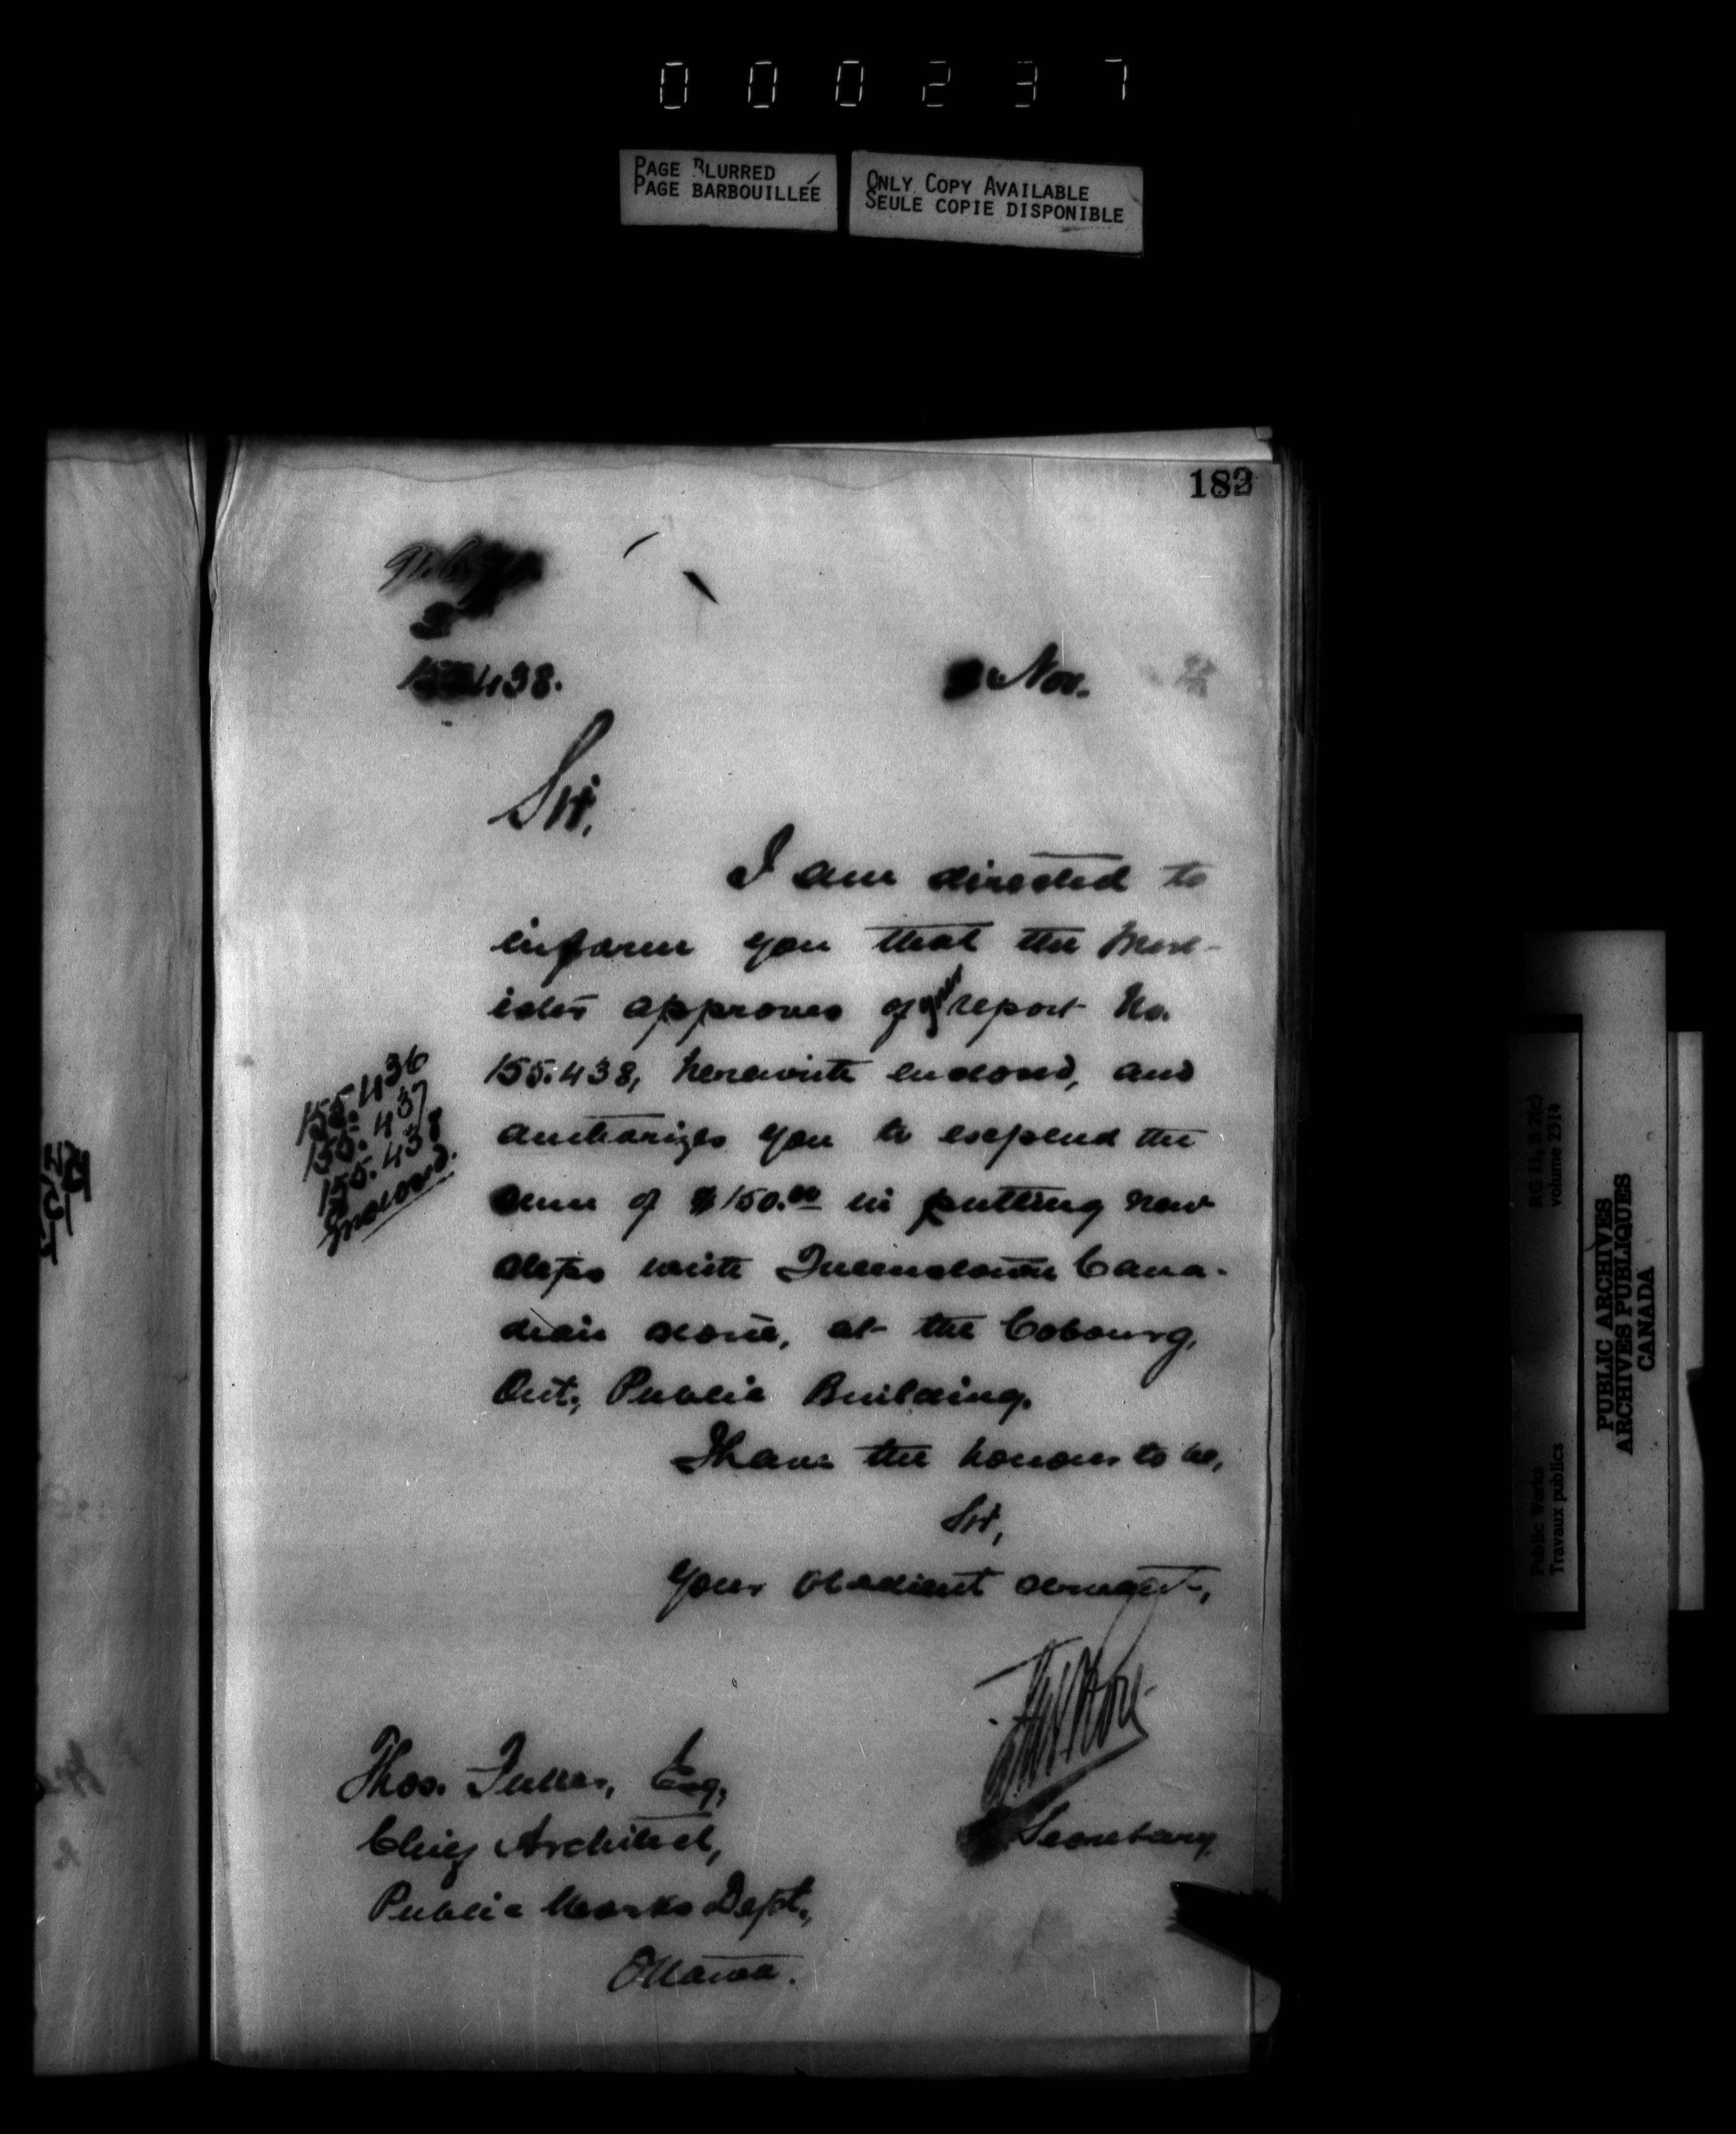 000237
PAGE BLURRED
PAGE BARBOUILLÉE
ONLY COPY AVAILABLE
SEULE COPIE DISPONIBLE
182
438.
Nov.
Sir,
I am directed to
inform you that the Min-
ister approves of your report No.
155.438, herewith enclosed, and
authorizes you to expend the
sum of $150.00 in putting new
steps with Queenstown Cana-
dian stone, at the Cobourg,
Ont., Public Building.
155.436
155.437
155.438
Enclosed.
I have the honour to be,
Sir,
Your obedient servant,
Secretary
Thos. Fuller, Esq,
Chief Architect,
Public Works Dept.,
Ottawa.
RG 11, B 2(c)
volume 2314
Public Works
Travaux publics
PUBLIC ARCHIVES
ARCHIVES PUBLIQUES
CANADA